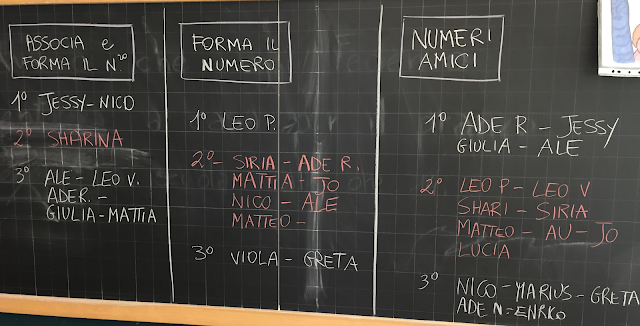 ASSOCIA e
FORMA IL N.ro
1º JESSY-NICO
2º SHARINA
3º ALE - LEO V.
ADE R. -
GIULIA-MATTIA
FORMA IL
NUMERO
1º- LEO P.
2º- SIRIA - ADE R.
MATTIA - JO
NICO - ALE
MATTEO -
3º VIOLA - GRETA
NUMERI
AMICI
1º ADE R - JESSY
GIULIA - ALE
2º LEO P - LEO V
SHARI - SIRIA
MATTEO - AU - JO
LUCIA
3º NICO - MARIUS - GRETA
ADE N = ENRICO